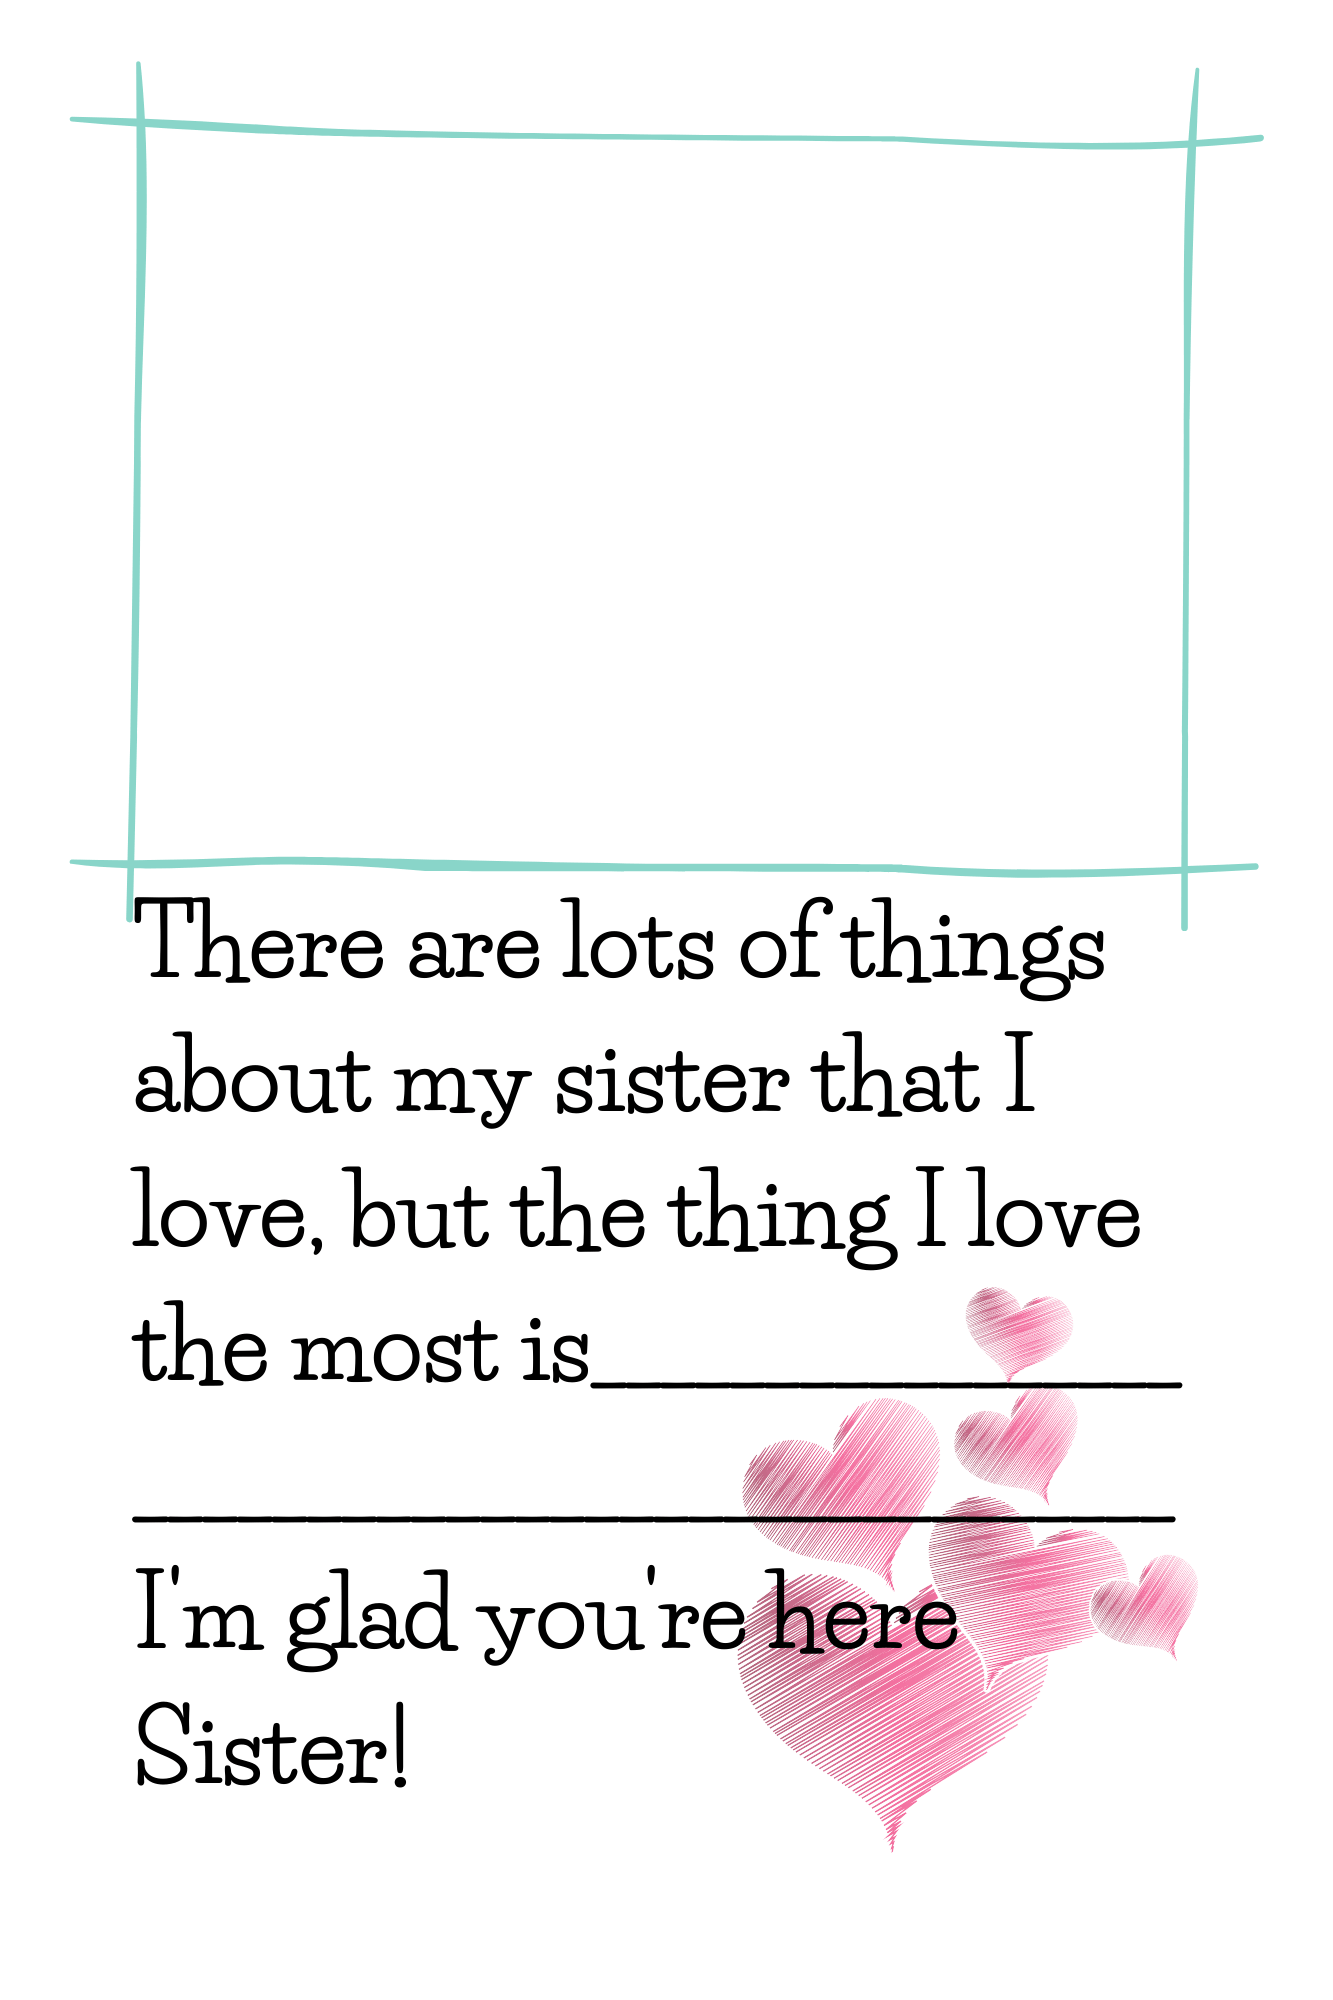 There are lots of things
about my sister that I
love, but the thing I love
the most is_________________
______________________________
I'm glad you're here
Sister!